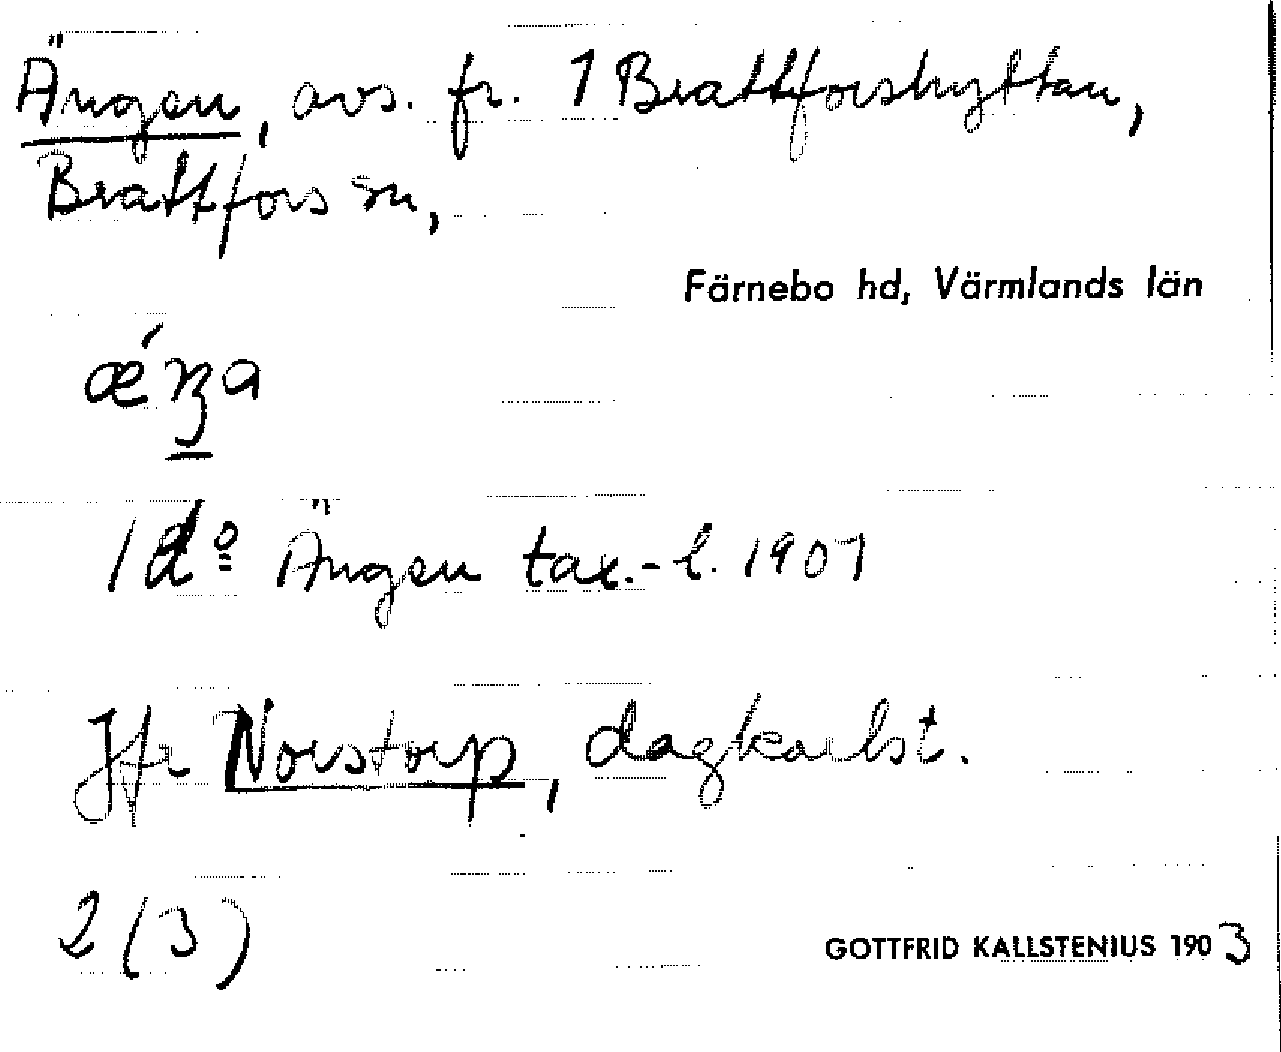 Ängen, avs. fr. 1 Brattforshyttan,
Brattfors sn,
Färnebo hd, Värmlands län
1 do Ängen tax.-l. 1901
Jfr Norstorp, dagkarlst.
2 (3)
GOTTFRID KALLSTENIUS 1903